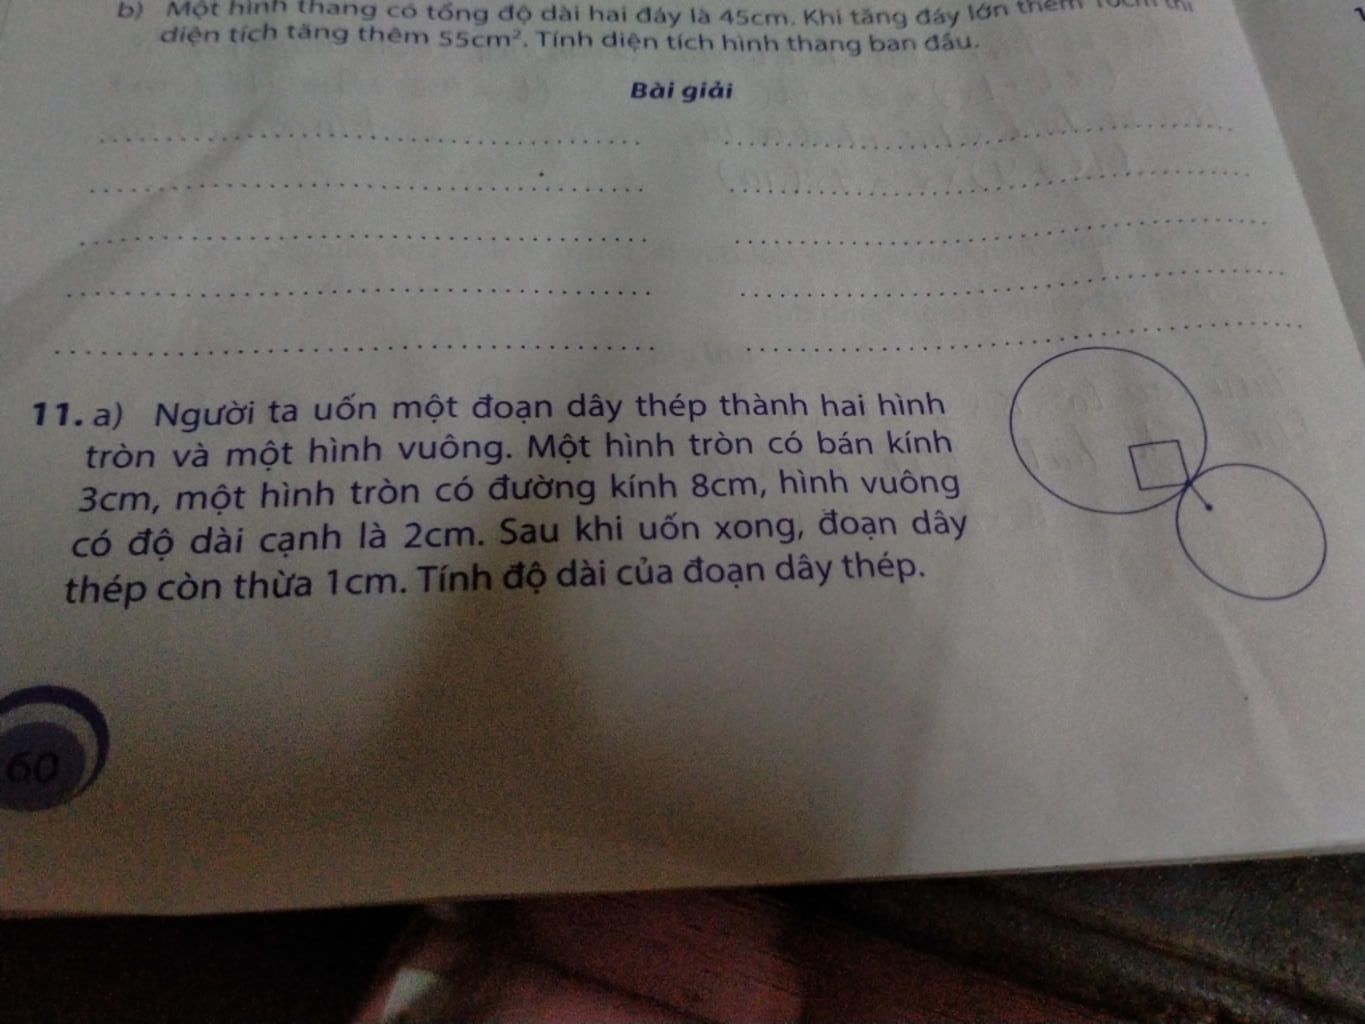 b) Một hình thang có tổng độ dài hai đáy là 45cm. Khi tăng đáy lớn thêm 10cm thì
diện tích tăng thêm 55cm². Tính diện tích hình thang ban đầu.
Bài giải
11. a) Người ta uốn một đoạn dây thép thành hai hình
tròn và một hình vuông. Một hình tròn có bán kính
3cm, một hình tròn có đường kính 8cm, hình vuông
có độ dài cạnh là 2cm. Sau khi uốn xong, đoạn dây
thép còn thừa 1cm. Tính độ dài của đoạn dây thép.
60